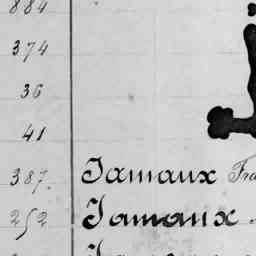 884
374
36
41
387. Jamaux Fra
252 Jamaux